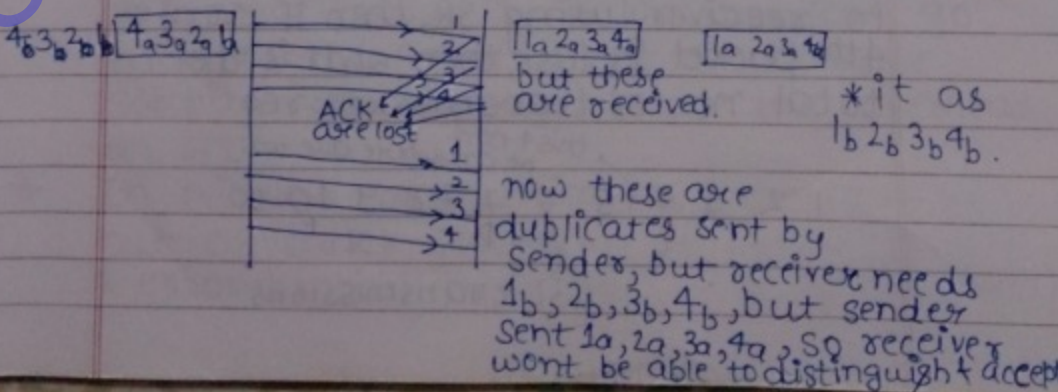 4b 3b 2b b 4a 3a 2a b
1
2
3
4
ACK
are lost
1a 2a 3a 4a
but these
are received.
1a 2a 3a 4a
*it as
1b 2b 3b 4b.
1
2
3
4
now these are
duplicates sent by
sender, but receiver needs
1b, 2b, 3b, 4b, but sender
sent 1a, 2a, 3a, 4a, so receiver
wont be able to distinguish & accept